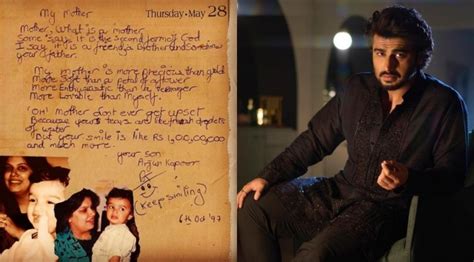 My Mother
Thursday-May 28
Mother, What is a mother
Some say it is the second form of God
I say it is a friend, a brother and somehow
your father.
My mother is more precious than gold
More soft than a petal of a flower
More Enthusiastic than a teenager
More Lovable than myself.
'OH' mother don't ever get upset
Because your tears are like droplets
of water
But your smile is like RS 1,00,00,000
and much more.
your son
Arjun Kapoor
(keep smiling)
6th Oct '97